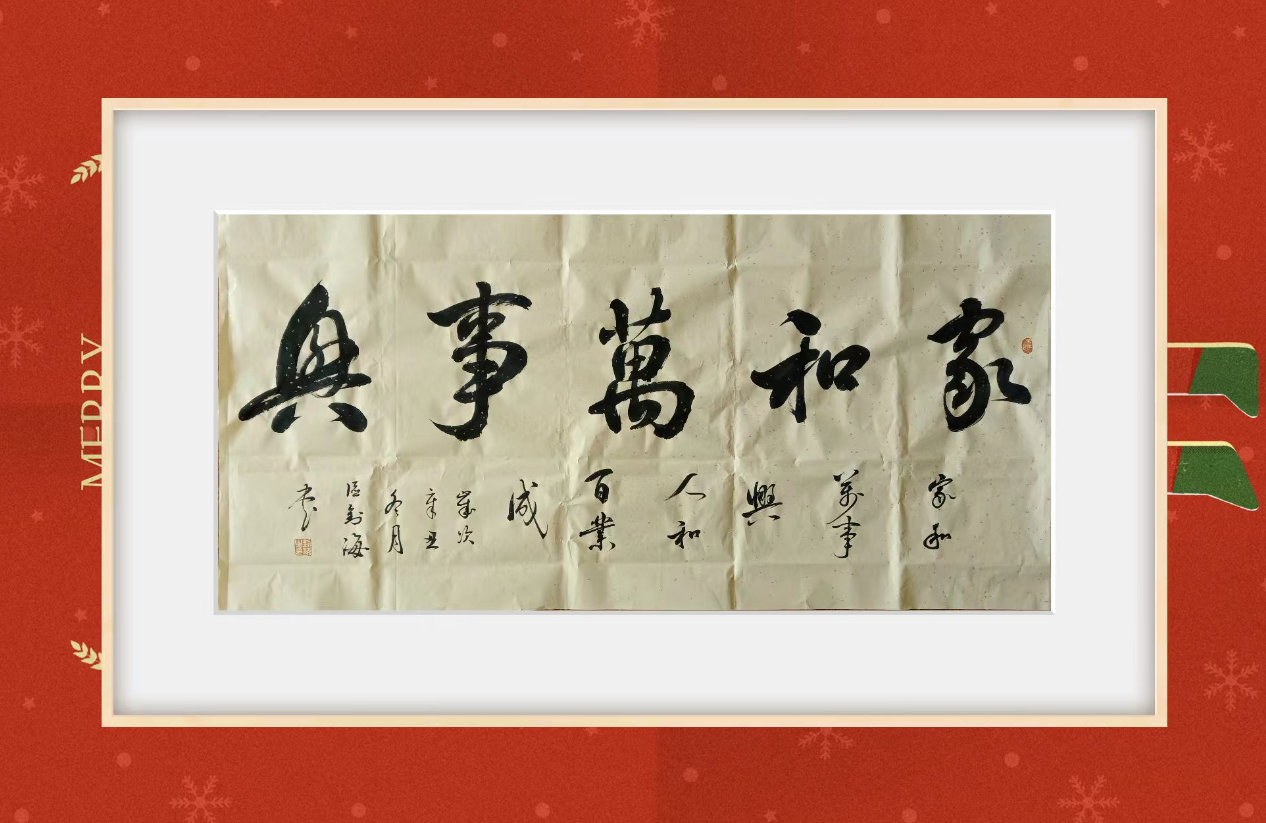 家和萬事興
家和
萬事
興
人和
百業
成
歲次
辛丑
冬月
海
書
MERRY